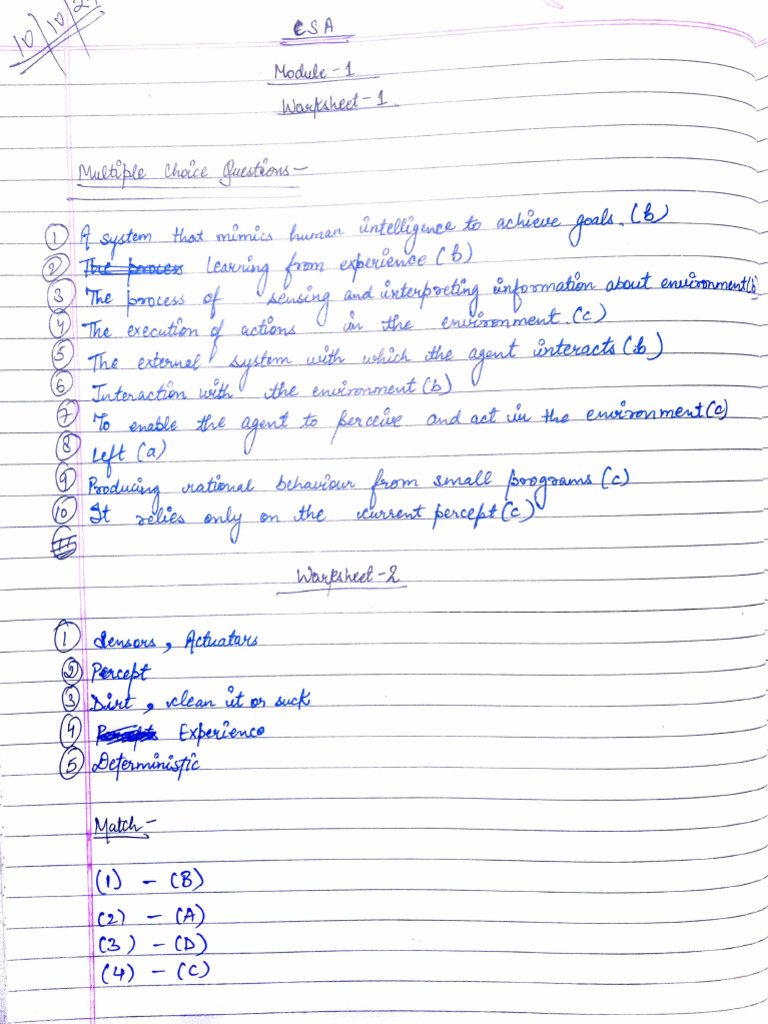 10/10/2
CSA
Module-1
Worksheet-1
Multiple Choice Questions-
① A system that mimics human intelligence to achieve goals. (b)
② Learning from experience (b)
③ The process of sensing and interpreting information about environment(b)
④ The execution of actions in the environment. (c)
⑤ The external system with which the agent interacts (b)
⑥ Interaction with the environment (b)
⑦ To enable the agent to perceive and act in the environment (c)
⑧ Left (a)
⑨ Producing rational behaviour from small programs (c)
⑩ It relies only on the current percept (c)
Worksheet-2
① Sensors, Actuators
② Percept
③ Dirt, clean it or suck
④ Experience
⑤ Deterministic
Match-
(1) - (B)
(2) - (A)
(3) - (D)
(4) - (C)